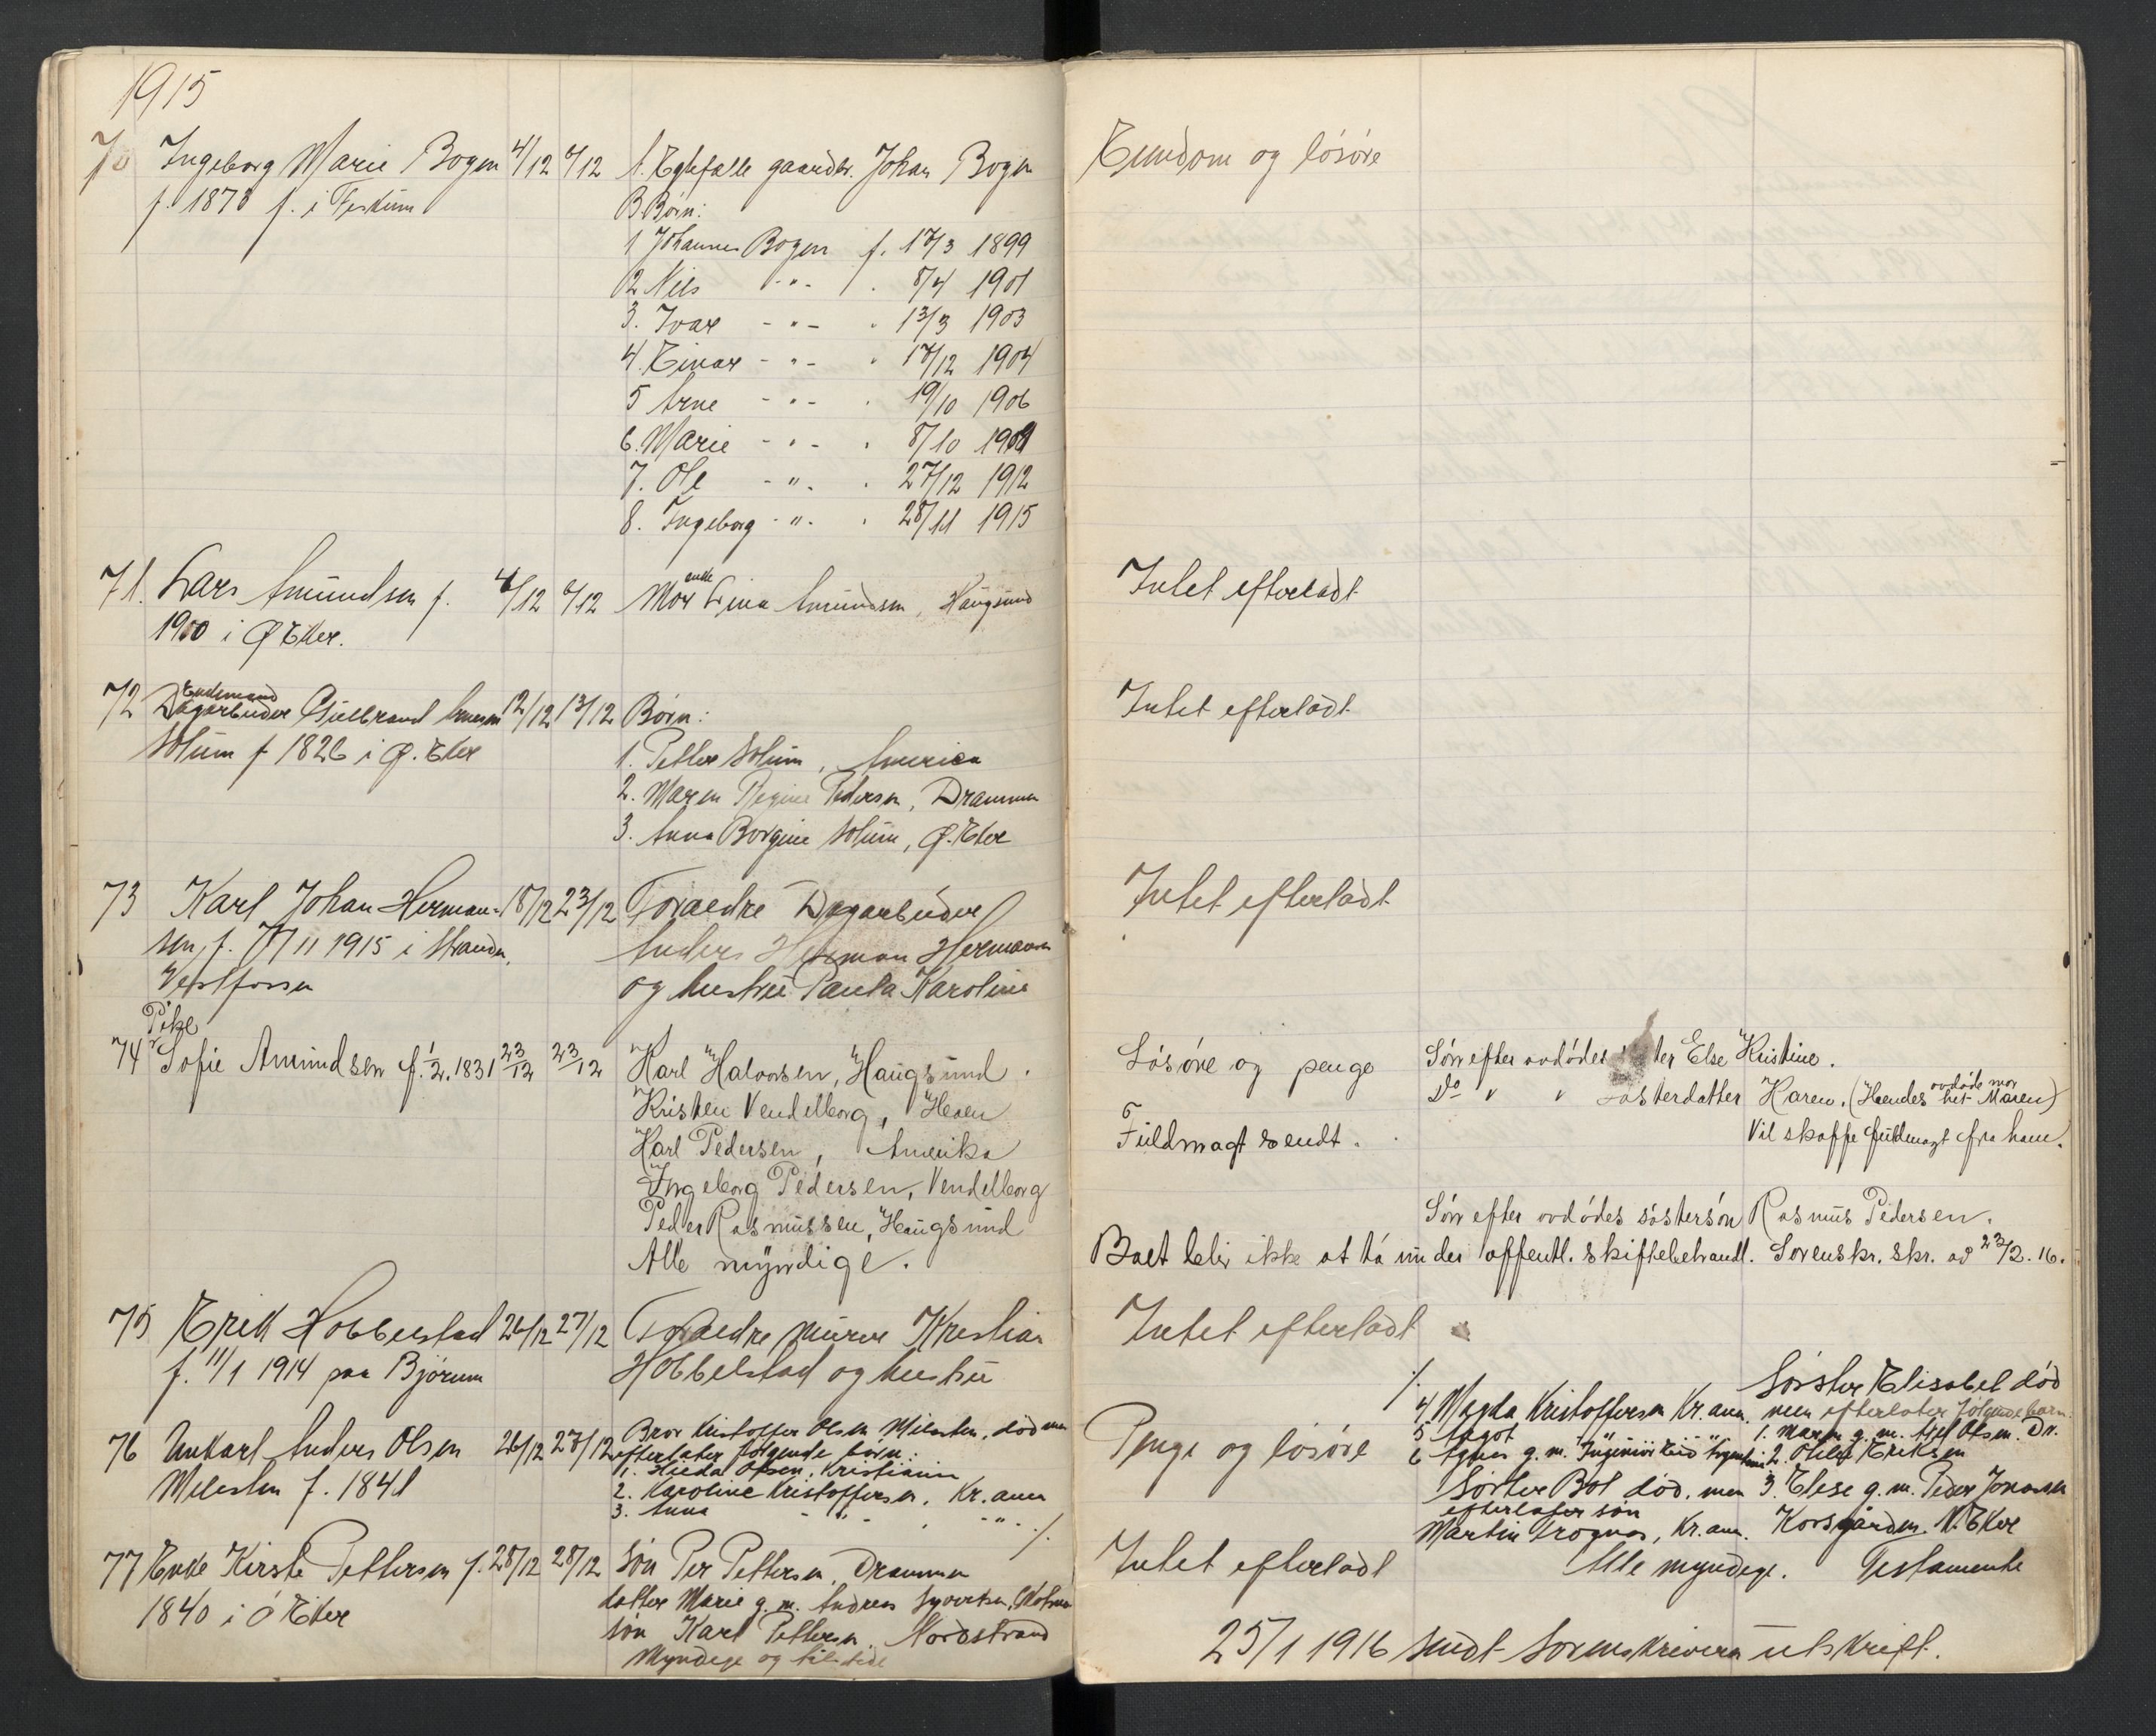 1915
70 Ingeborg Marie Bogen 4/12 6/12 1. Egtefælle gaardbr. Johan Bogen
f. 1873 f. i Fiskum
B Børn:
1 Johannes Bogen f. 17/3 1899
2. Nils -"- " 8/4 1901
3. Ivar -"- " 13/3 1903
4. Einar -"- " 17/12 1904
5 Arne -"- " 19/10 1906
6. Marie -"- " 8/10 1909
7. Ole -"- " 27/12 1912
8. Ingeborg -"- " 28/11 1915
Eiendom og løsøre
71. Lars Amundsen f. 4/12 6/12 Mor enke Lina Amundsen, Haugsund
1900 i Ø Eker.
Intet efterladt
72 Enkemand
Dagarbeider Gulbrand Arnesen 12/12 13/12 Børn:
Solum f 1826 i Ø. Eker
1. Petter Solum, America
2. Maren Regine Pedersen, Drammen
3. Anna Borgine Solum, Ø. Eker
Intet efterladt
73 Karl Johan Herman- 18/12 23/12 Forældre Dagarbeider
sen, f. 7/11 1915 i Stranden, Anders Herman Hermansen
Vestfossen og hustru Paula Karoline
Intet efterladt
Pike
74 Sofie Amundsen f. 1/2. 1831 23/12 23/12 Karl Halvorsen, Haugsund.
Kristen Vendelborg, Heen
Karl Pedersen, Amerika
Ingeborg Pedersen, Vendelborg
Peder Rasmussen, Haugsund
Alle myndige.
Løsøre og penge Søn efter avdødes søster Else Kristine.
Do " " søsterdatter Karen. (Hendes avdøde mor het Maren)
Fuldmagt sendt. Vil skaffe fuldmagt fra ham.
Søn efter avdødes søstersøn Rasmus Pedersen.
Boet blir ikke at ta under offentl. skiftebehandl. Sorenskr. skr. av 23/2. 16.
75 Erik Hobbelstad 26/12 27/12 Forældre murer Kristian
f. 11/1 1914 paa Bjørum Hobbelstad og hustru
Intet efterladt
76 Unkarl Anders Olsen 26/12 27/12 Bror Kristoffer Olsen Milesten, død men
Milesten f. 1841 efterlater følgende børn:
1. Hilda Olsen, Kristiania
2. Karoline Kristoffersen, Kr. ania
3. Anna -"- , -"- ./.
Penge og løsøre
./.
4 Magda Kristoffersen Kr. ania.
5 Aagot " "
6 Agnes g. m. Ingeniør Eid Argentina
Søster Bol død, men
efterlater søn
Martin Trognes, Kr. ania.
Søster Elisabet død
men efterlater følgende barn:
1. Maren g. m. Axel Olsen. Dr.
2. Oluf Eriksen
3. Elise g. m. Peder Jonassen
Korsgården N. Eker
Alle myndige. Testamente
77 Enke Kirste Pettersen f. 28/12 28/12 Søn Per Pettersen, Drammen
1840 i Ø Eker datter Marie g. m. Andreas Syvertsen,
søn Karl Pettersen, Nordstrand
Myndige og tilstede
Intet efterladt
25/1 1916 sendt Sorenskriveren utskrift.